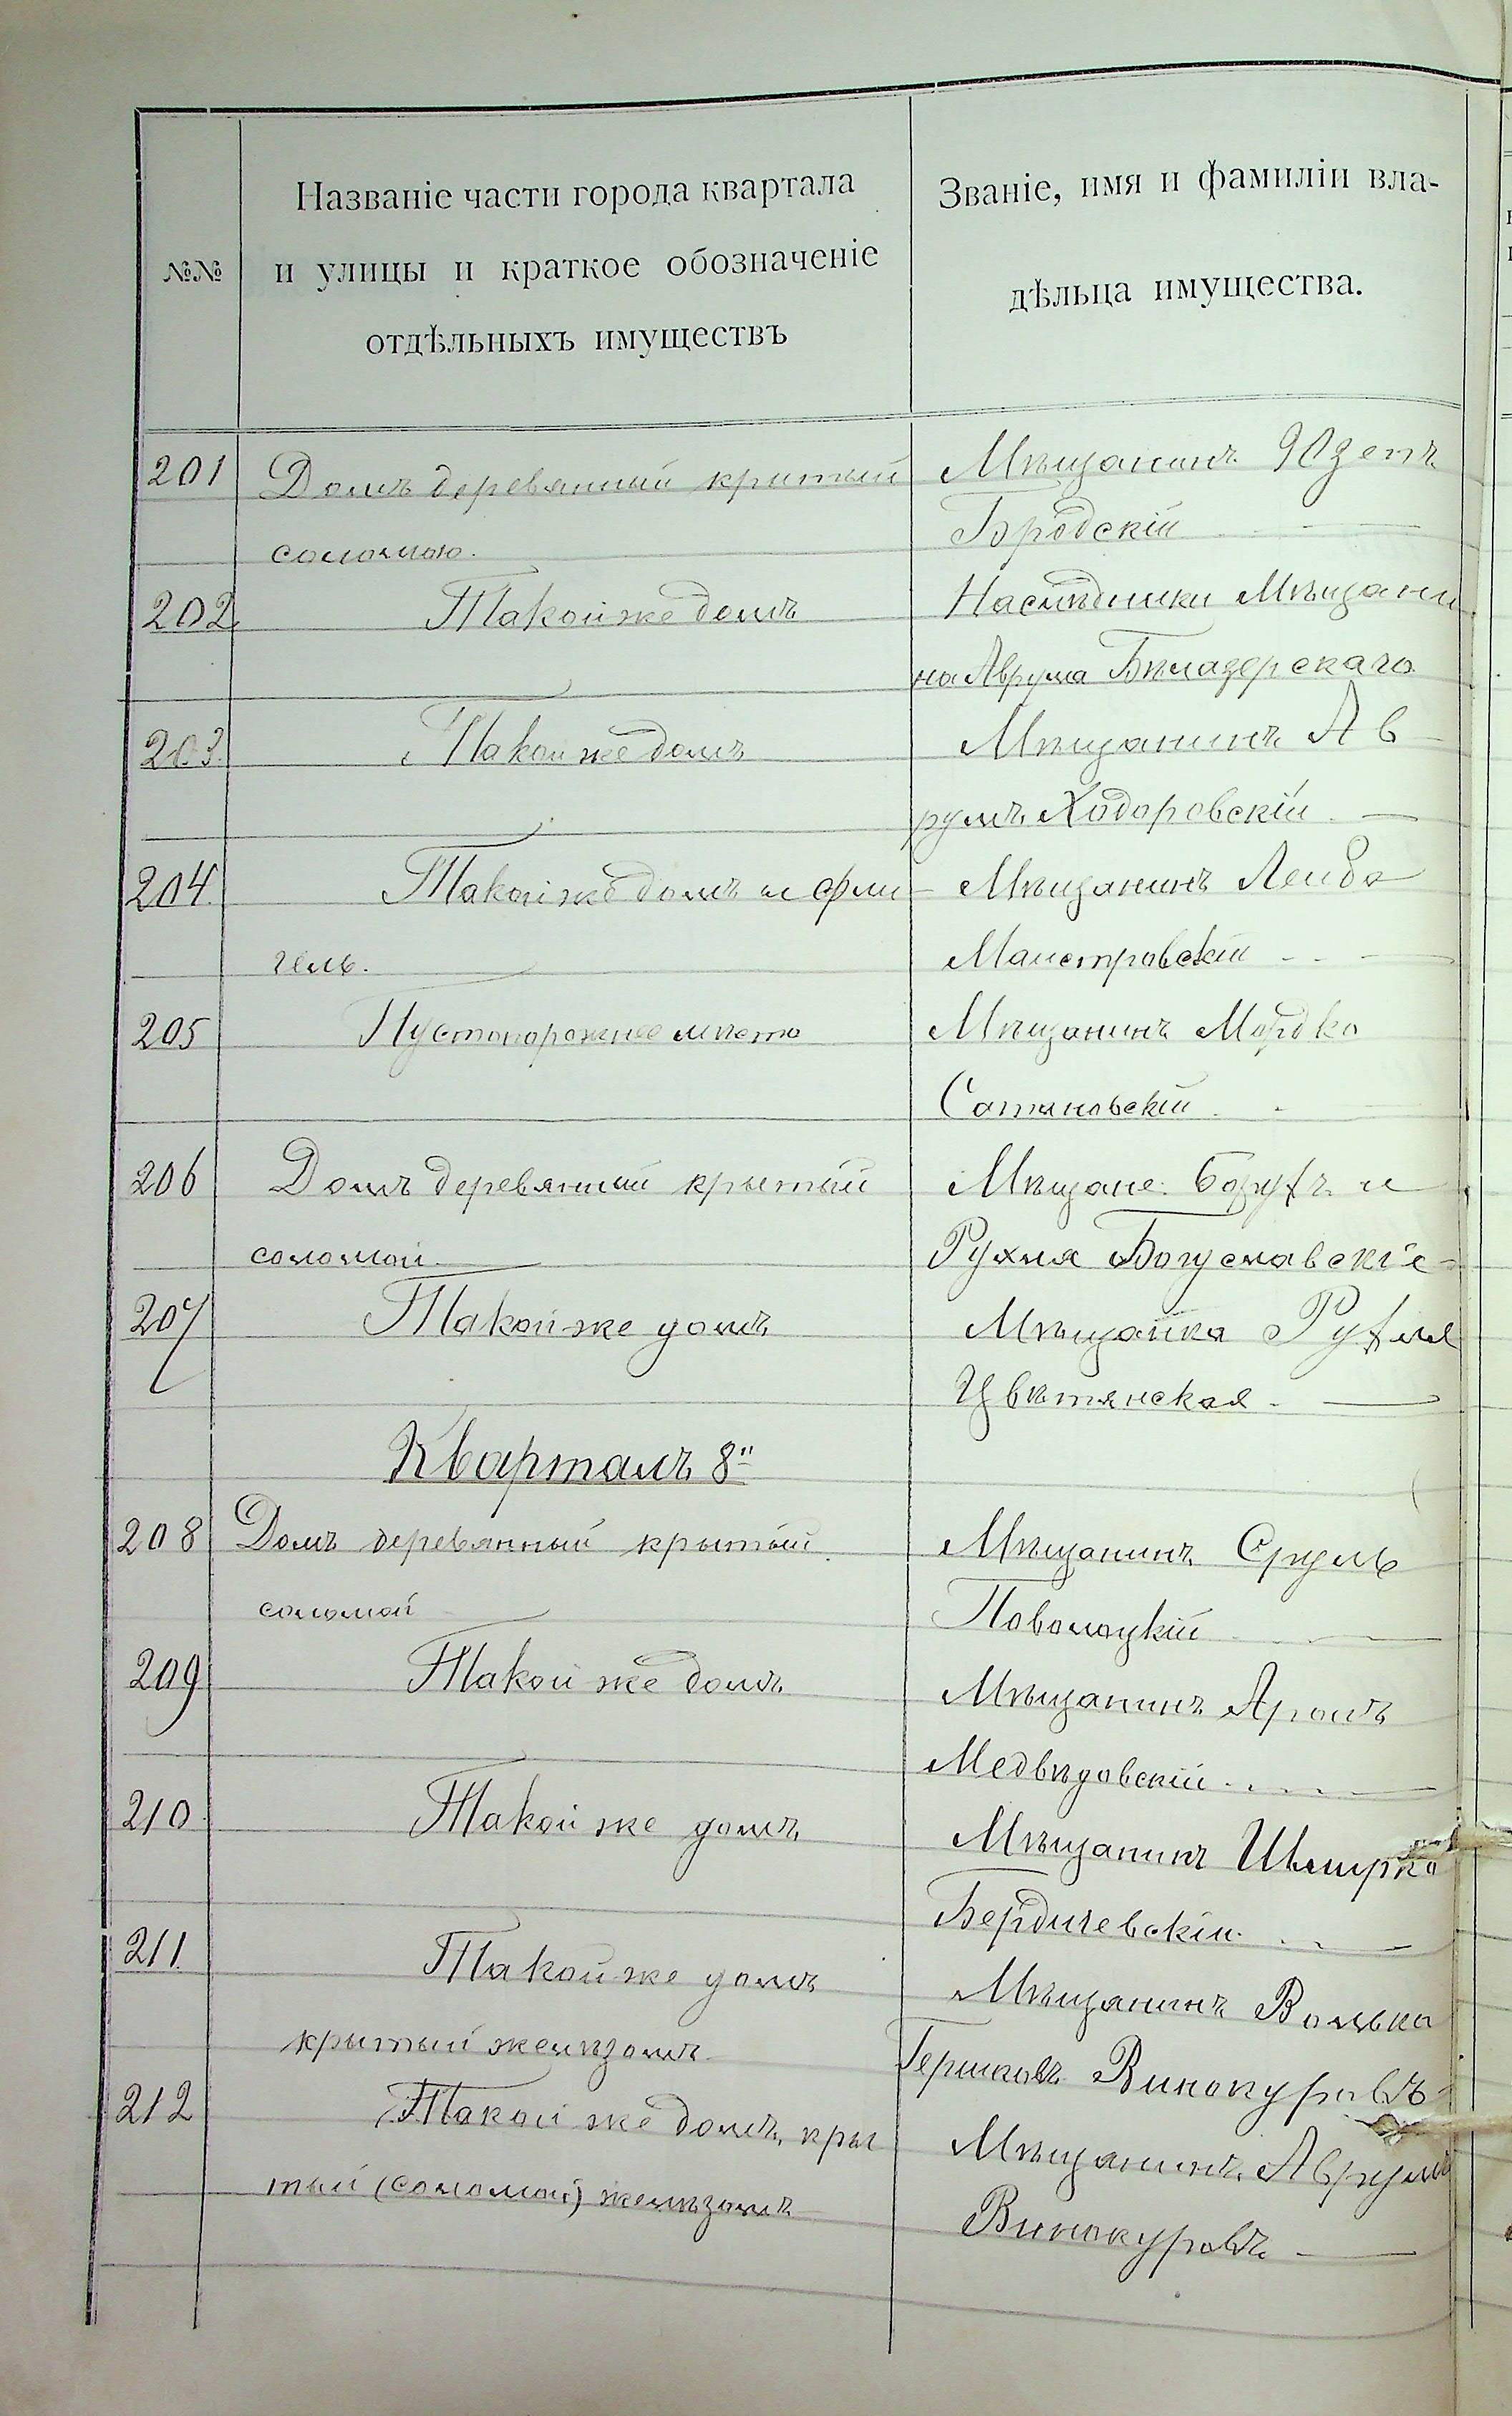 №№
Названіе части города квартала
и улицы и краткое обозначеніе
отдѣльныхъ имуществъ
Званіе, имя и фамиліи вла-
дѣльца имущества.
201 Домъ деревянный крытый Мѣщанинъ Юзепъ
соломою. Бродскій
202 Такой же домъ Наслѣдники Мѣщани
на Аврума Бѣлазерскаго
203. Такой же домъ Мѣщанинъ Ав
румъ Ходоровскій
204. Такой же домъ и фли Мѣщанинъ Лейба
гель. Маистровскій
205 Пустопорожнее мѣсто Мѣщанинъ Мордко
Сатановскій
206 Домъ деревянный крытый Мѣщане Борухъ и
соломой Рухля Богуславскіе
207 Такой же домъ Мѣщанка Рухля
Цвѣтянская
Кварталъ 8й
208 Домъ деревянный крытый Мѣщанинъ Сруль
соломой Поволоцкій
209 Такой же домъ Мѣщанинъ Аронъ
Медвѣдовскій
210 Такой же домъ Мѣщанинъ Шмирко
Бердичевскій
211 Такой же домъ Мѣщанинъ Волько
крытый желѣзомъ Гершковъ Винокуровъ
212 Такой же домъ, кры Мѣщанинъ Аврумъ
тый (соломой) желѣзомъ Винокуровъ